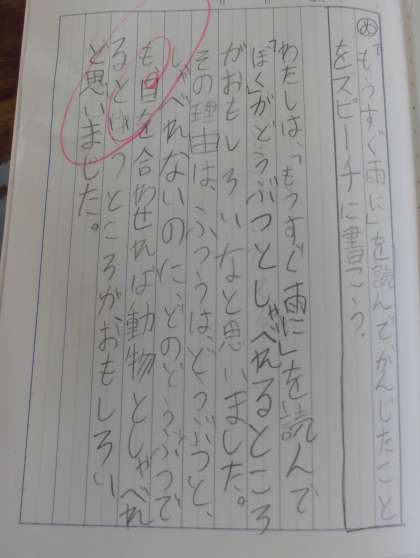 め「もうすぐ雨に」を読んで、かんじたこと
をスピーチに書こう。
わたしは、「もうすぐ雨に」を読んで
「ぼく」がどうぶつとしゃべれるところ
がおもしろいなと思いました。
その理由は、ふつうは、どうぶつと、
しゃべれないのに、どのどうぶつで
も、目を合わせれば動物としゃべれ
るというところが、おもしろい
と思いました。